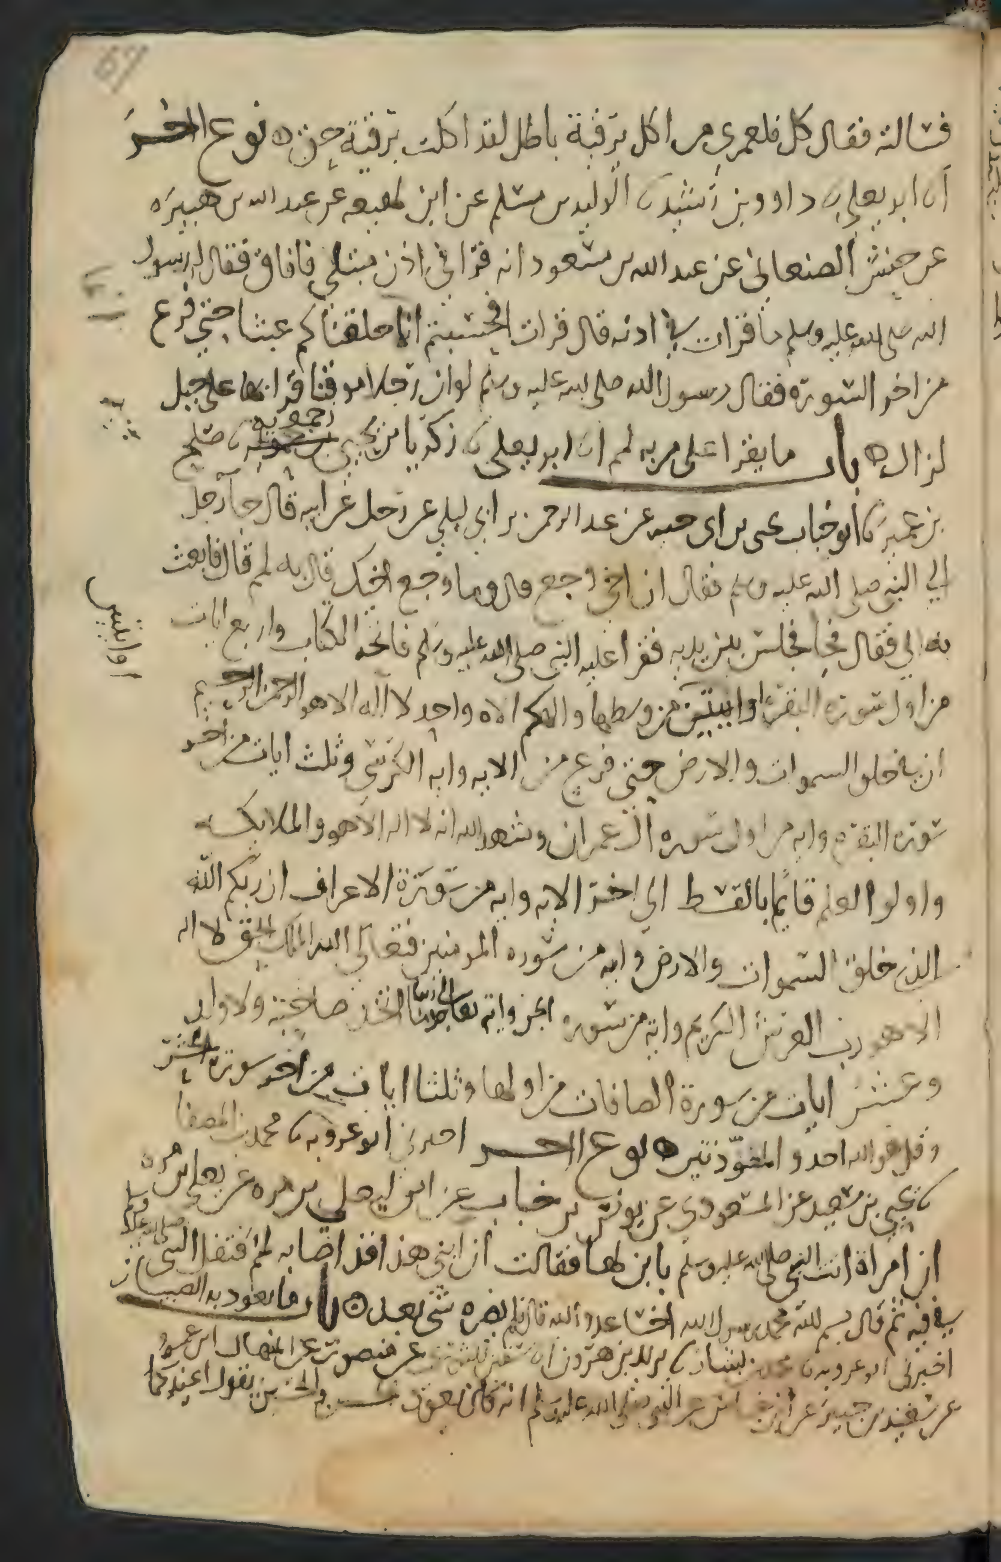 67
فسالته فقال كل فلعمري من اكل برقية باطل لقد اكلت برقية حق ه نوع اخر
انا ابو يعلى ثنا داوود بن رشيد ثنا الوليد بن مسلم عن ابن لهيعه عن عبد الله بن هبيرة
عن حنش الصنعاني عن عبد الله بن مسعود انه قرا في اذن مبتلى فافاق فقال له رسول
الله صلى الله عليه وسلم ما قرات في اذنه قال قرات افحسبتم انما خلقناكم عبثا حتى فرغ
من اخر السورة فقال رسول الله صلى الله عليه وسلم لو ان رجلا موقنا قرا بها على جبل
لزال ه باب ما يقرا على من به لمم انا ابو يعلى ثنا زكريا بن يحيى زحمويه ثنا صالح
بن عمر ثنا ابو جناب يحيى بن ابي حيه عن عبد الرحمن بن ابي ليلى عن رجل عن ابيه قال جا رجل
الى النبي صلى الله عليه وسلم فقال ان اخي وجع قال وما وجع اخيك قال به لمم قال فابعث
به الي فقال فجا فجلس بين يديه فقرا عليه النبي صلى الله عليه وسلم فاتحة الكتاب واربع ايات
من اول سورة البقرة وايتين من وسطها والهكم الاه واحد لا اله الا هو الرحمن الرحيم
ان في خلق السموات والارض حتى فرغ من الايه واية الكرسي وثلث ايات من اخر
سورة البقرة وايه من اول سورة ال عمران وشهد الله انه لا اله الا هو والملايكه
واولوا العلم قايما بالقسط الى اخر الايه وايه من سورة الاعراف ان ربكم الله
الذي خلق السموات والارض وايه من سوره المومنين فتعالى الله الملك الحق لا اله
الا هو رب العرش الكريم وايه من سوره الجن وانه تعالى جد ربنا ما اتخذ صاحبة ولا ولدا
وعشر ايات من سورة الصافات من اولها وثلثا ايات من اخر سورة الحشر
وقل هو الله احد والمعوذتين ه نوع اخر اخبرني ابو عروبه ثنا محمد بن المصفا
ثنا يحيى بن سعيد عن المسعودي عن يونس بن خباب عن ابن ليعلى بن مره عن يعلى بن مره
ان امراة اتت النبي صلى الله عليه وسلم بابن لها فقالت ان ابني هذا قد اصابه لمم فتفل النبي صلى الله عليه وسلم
في فيه ثم قال بسم الله محمد رسول الله اخسا عدو الله قال فلم يضره شي بعد ه باب ما يعوذ به الصبيان
اخبرني ابو عروبه ثنا محمد بن بشار ثنا يزيد بن هرون انا سفين الثوري عن منصور عن المنهال ابن عمرو
عن سعيد بن جبير عن ابن عباس عن النبي صلى الله عليه وسلم انه كان يعوذ حسن والحسين يقول اعيذكما
وايتين